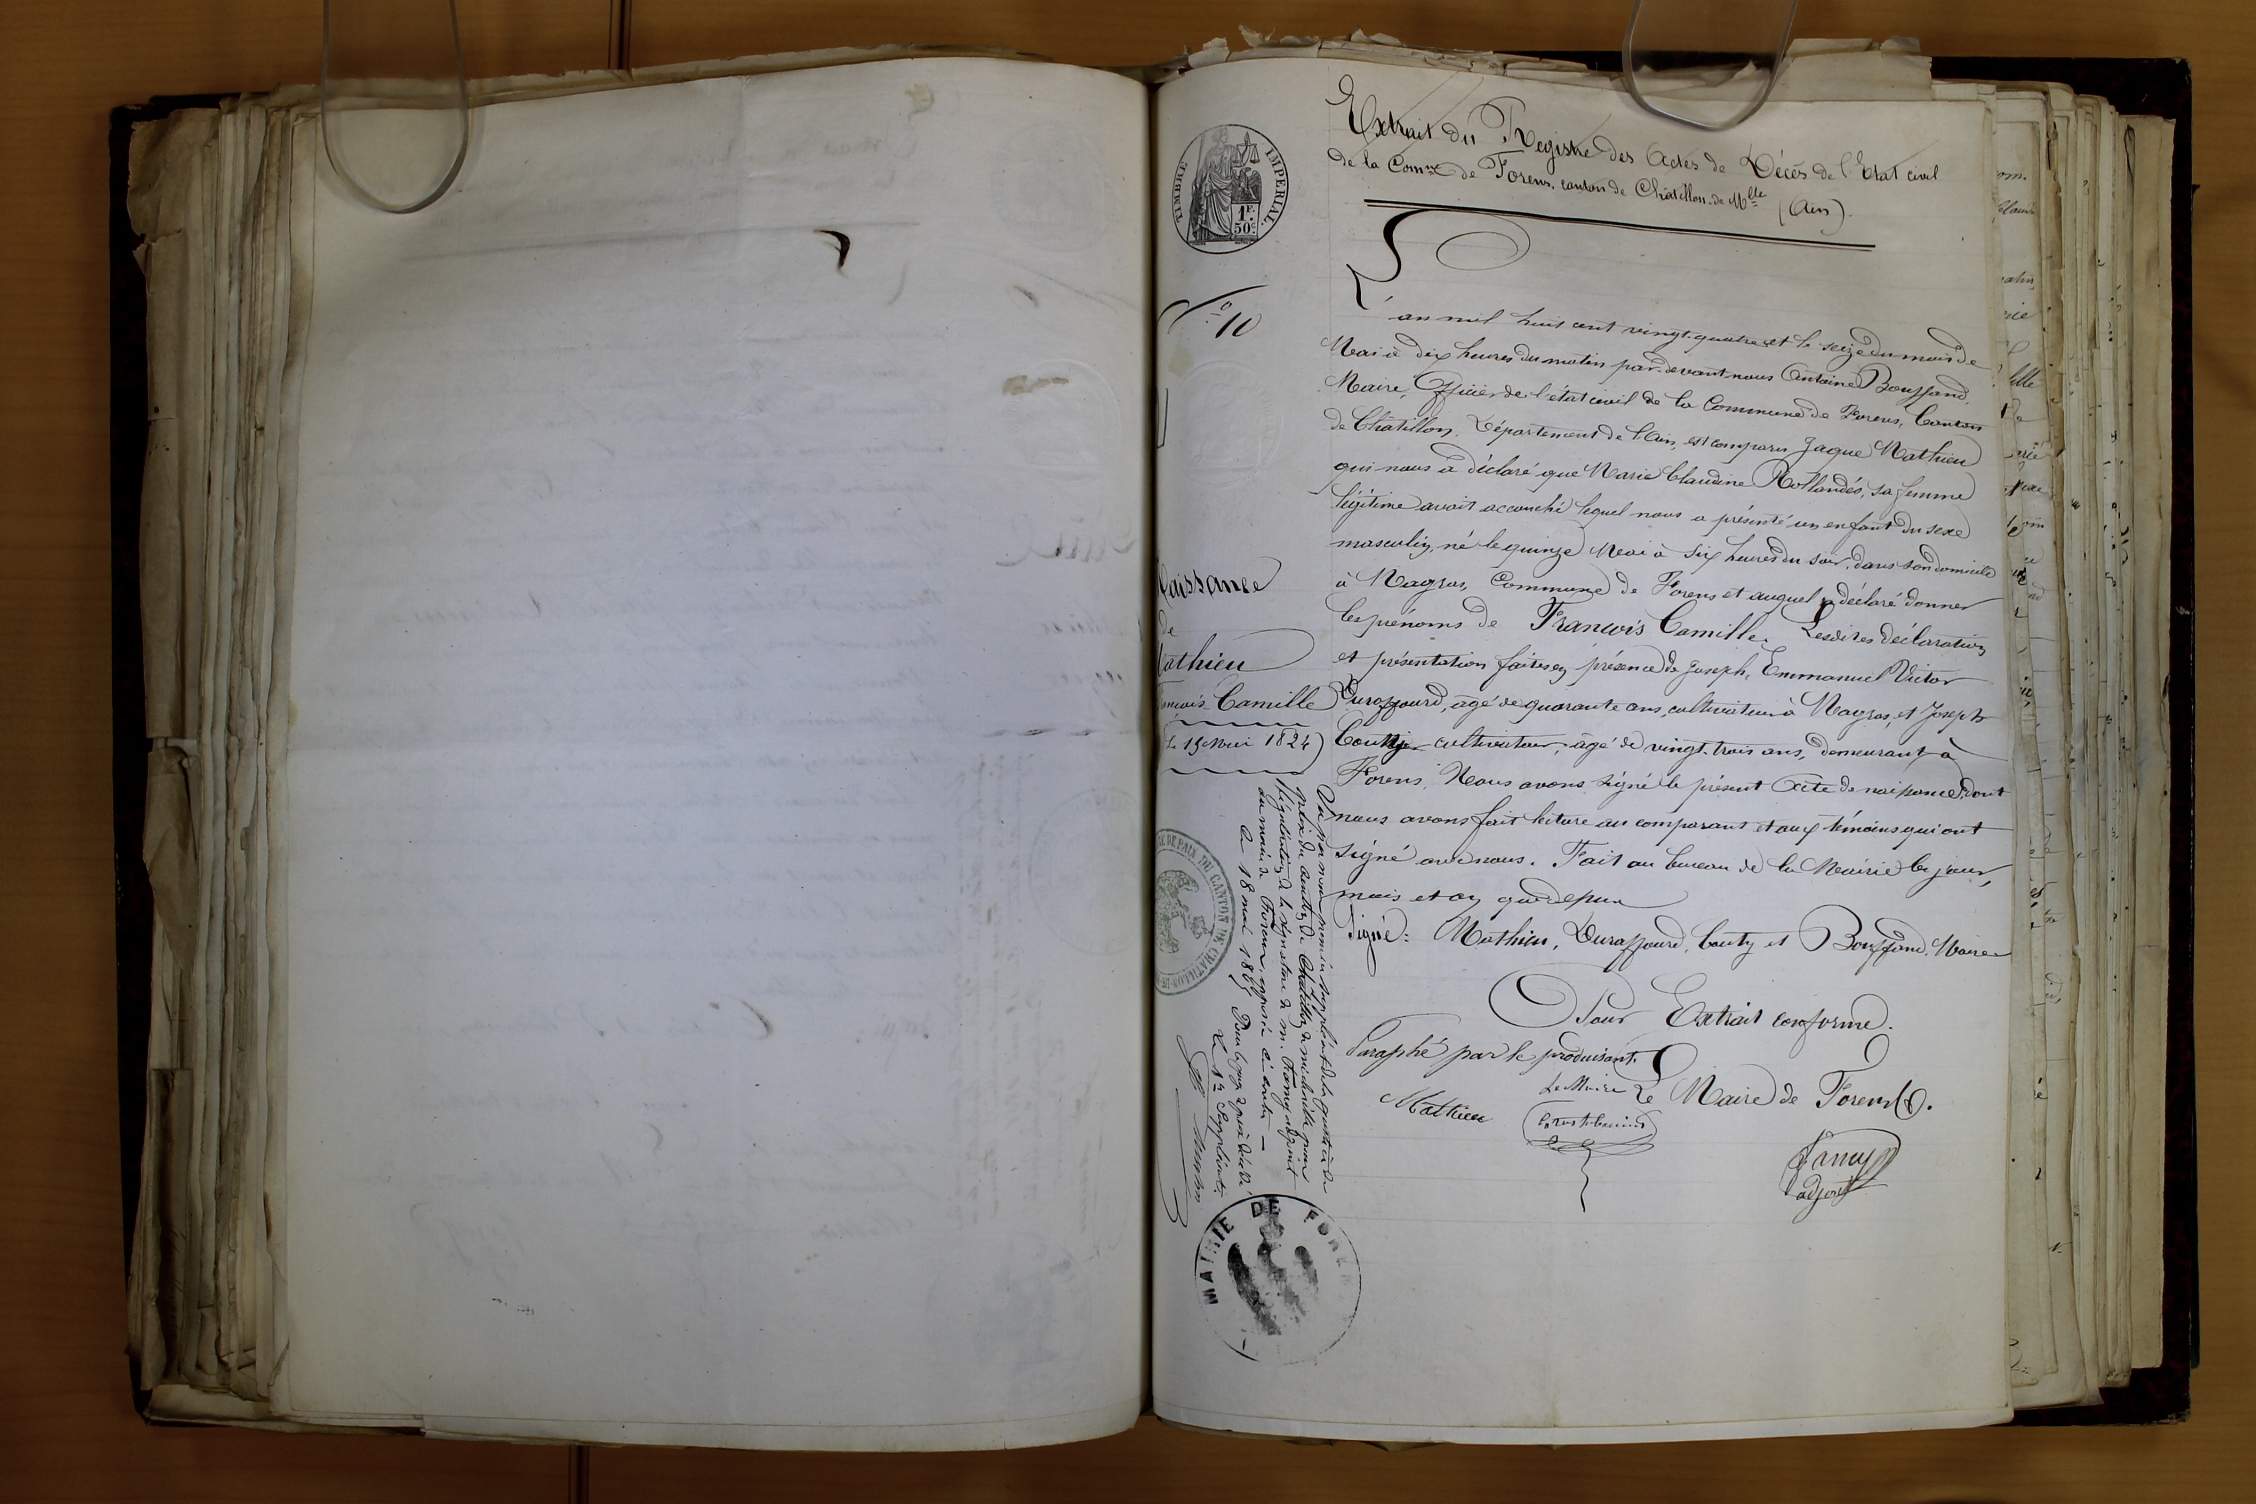 Extrait du Registre des Actes de Décès de l'Etat civil
de la Comne de Forens, canton de Châtillon-de-Mlle (Ain).
TIMBRE IMPERIAL
1F.
50c
10
L'an mil huit cent vingt-quatre et le seize du mois de
Mai à dix heures du matin par-devant nous Antoine Bouffand,
Maire, Officier de l'état civil de la Commune de Forens, Canton
de Châtillon, Département de l'Ain, est comparu Jaque Mathieu
qui nous a déclaré que Marie Claudine Rollandés, sa femme
légitime avait accouché lequel nous a présenté un enfant du sexe
masculin, né le quinze Mai à six heures du soir, dans son domicile
à Magras, Commune de Forens et auquel a déclaré donner
les prénoms de François Camille. Lesdites déclaration
et présentation faites en présence de Joseph, Emmanuel Victor
Duraffourd, agé de quarante ans, cultivateur à Magras, et Joseph
Coutty cultivateur, agé de vingt-trois ans, demeurant à
Forens. Nous avons signé le présent Acte de naissance, dont
nous avons fait lecture au comparant et aux témoins qui ont
signé avec nous. Fait au bureau de la Mairie les jour,
mois et an que depur
Signé: Mathieu, Duraffourd, Couty et Bouffand, Maire
Pour Extrait conforme.
Paraphé par le produisant.
Le Maire Le Maire de Forens
Mathieu
adjoint
Naissance
de
Mathieu
François Camille
Le 15 Mai 1824
Vu par nous premier suppléant de la justice de
paix du canton de Châtillon de michaille pour
légalisation de la signature de M. adjoint
au maire de Forens, apposée ci-contre
Le 18 mai
Le 1er Suppléant
DE PAIX DU CANTON DE CHATILLON-DE
MAIRIE DE FORENS